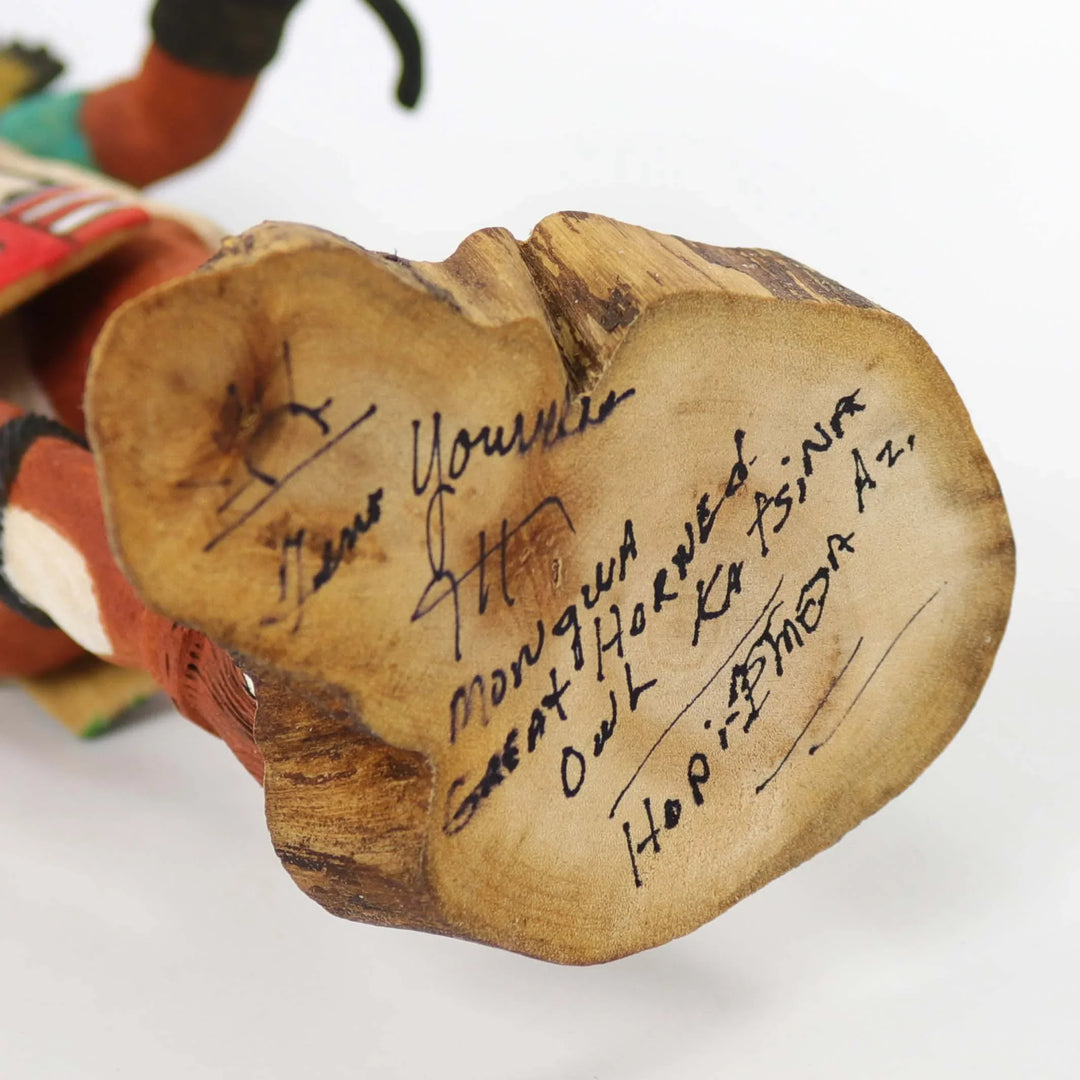 Tino Youvella
MONgWA
GREAT HORNEd
OWL KAtsiNA
HOPi- Az.